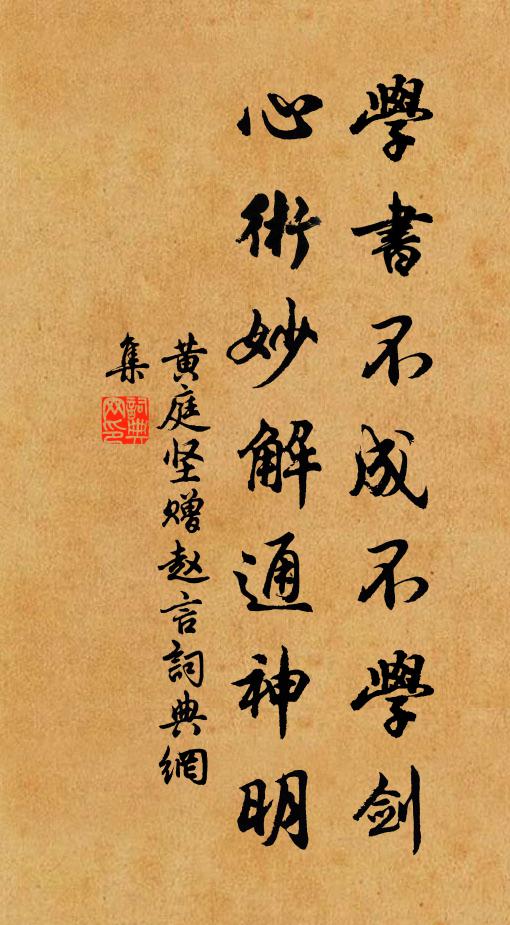 學書不成不學劍
心術妙解通神明
黄庭坚赠赵言詞典網
集
詞典
网印